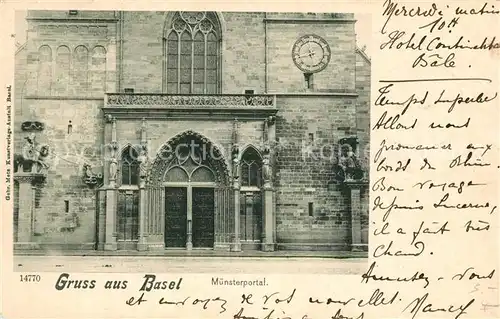 Mercredi matin
10 H
Hôtel Continental
Bâle
Temps superbe
Allons nous
promener aux
bords du Rhin.
Bon voyage
depuis Lucerne,
il a fait très
chaud.
Amusez-vous
et envoyez de vos nouvelles.
Gebr. Metz Kunstverlags-Anstalt Basel
14770
Gruss aus Basel
Münsterportal.